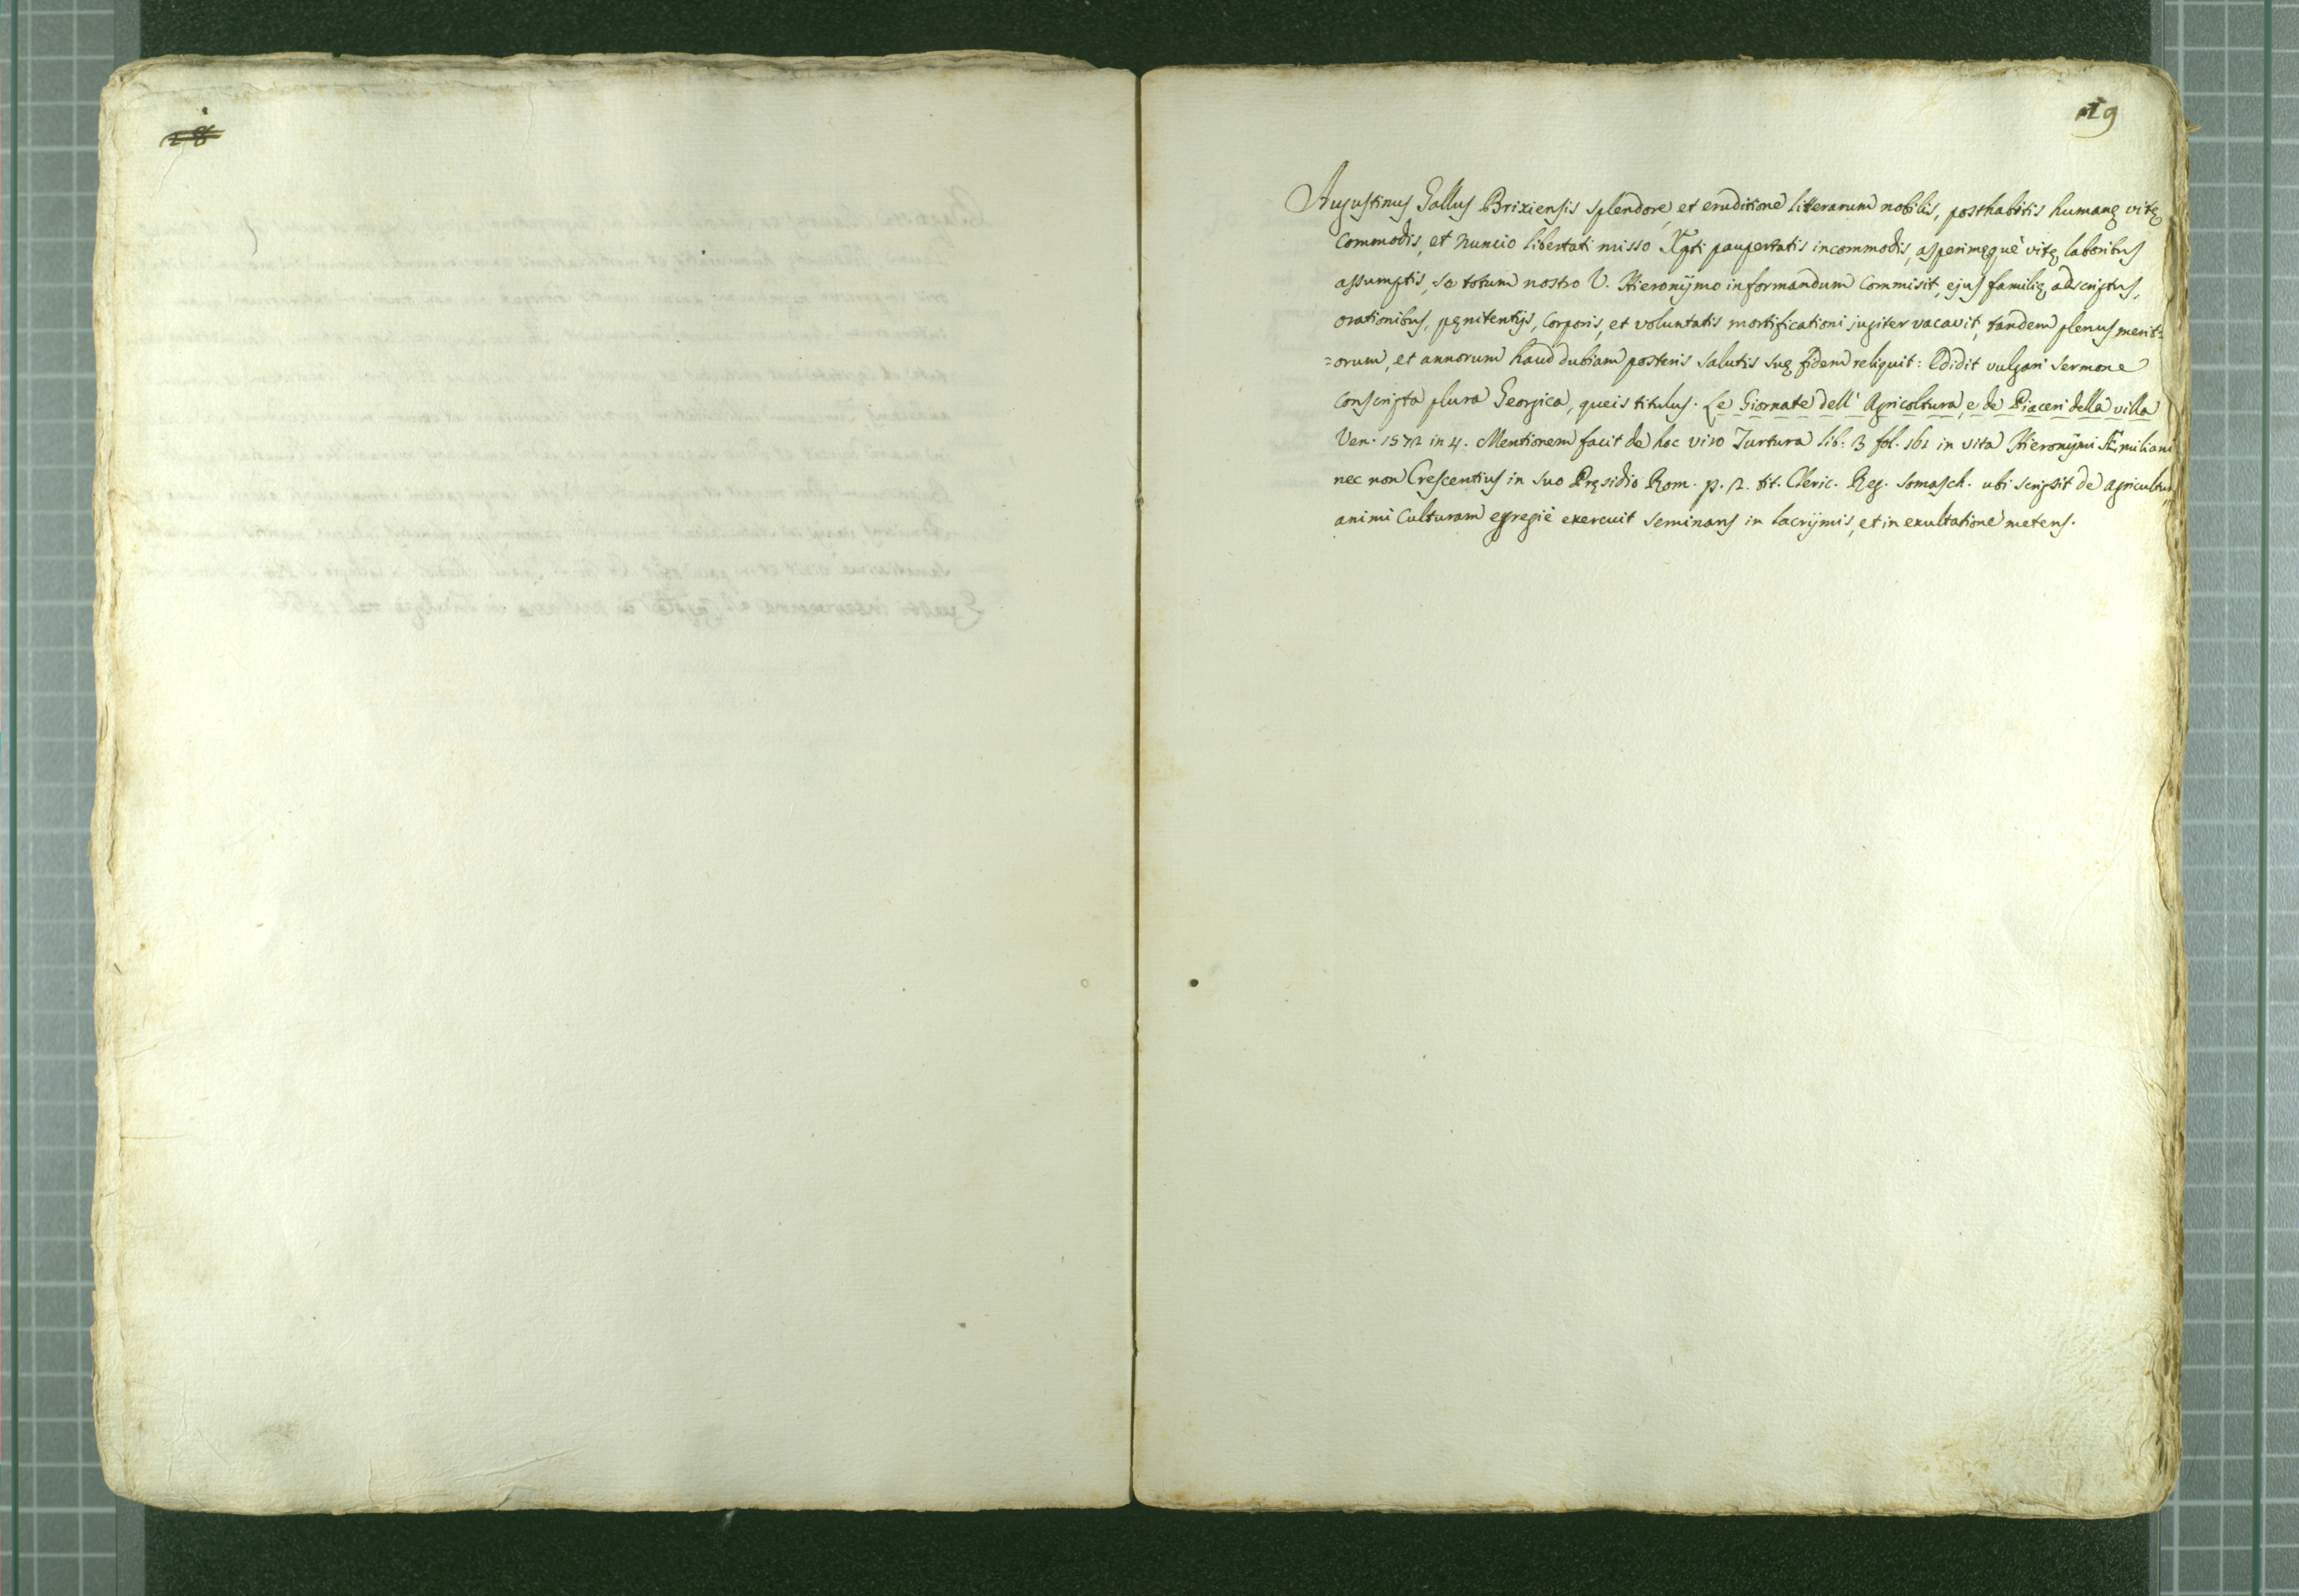 18
19
Augustinus Gallus Brixiensis splendore, et eruditione litterarum nobilis, posthabitis humanę vitę
commodis, et nuncio libertati misso Xpti paupertatis incommodis, asperimęquè vitę laboribus
assumptis, se totum nostro V. Hieronÿmo informandum commisit, ejus familię adscriptus,
orationibus, pęnitentijs, corporis, et voluntatis mortificationi jugiter vacavit, tandem plenus merit=
=orum, et annorum haud dubiam posteris salutis suę fidem reliquit: Edidit vulgari sermone
conscripta plura Georgica, queis titulus. Le Giornate dell' Agricoltura, e de Piaceri della villa
Ven. 1572 in 4. Mentionem facit de hoc viro Turtura lib. 3 fol. 161 in vita Hieronÿmi Æmiliani
nec non Crescentius in suo Pręsidio Rom. p. 2. tit. Cleric. Reg. Somasch. ubi scripsit de agricultura
animi culturam egregiè exercuit seminans in lacrÿmis, et in exultatione metens.